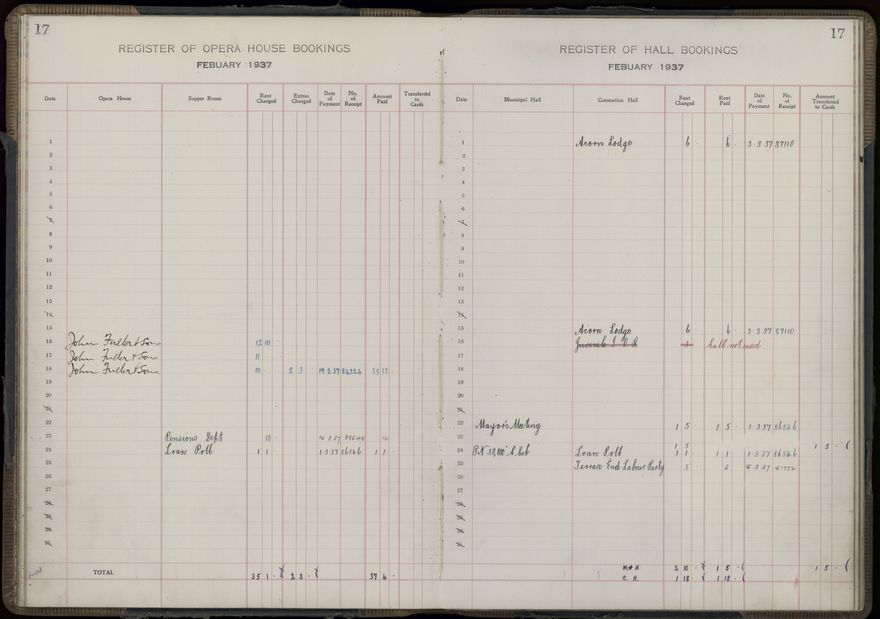 17
REGISTER OF OPERA HOUSE BOOKINGS
FEBUARY 1937
Date Opera House Supper Room Rent Charged Extras Charged Date of Payment No. of Receipt Amount Paid Transferred to Cards
1
2
3
4
5
6
7
8
9
10
11
12
13
14
15
16 John Fuller & Son 12 10
17 John Fuller & Son 11
18 John Fuller & Son 10 2 3 19 2 37 86226 35 13
19
20
21
22
23 Pensions Dept 10 10
24 Loan Poll 1 1 1 3 37 86546 1 1
25
26
27
28
29
30
31
TOTAL 35 1 2 3 37 4
17
REGISTER OF HALL BOOKINGS
FEBUARY 1937
Date Municipal Hall Coronation Hall Rent Charged Rent Paid Date of Payment No. of Receipt Amount Transferred to Cards
1 Acorn Lodge 6 6 3 3 37 87110
2
3
4
5
6
7
8
9
10
11
12
13
14
15 Acorn Lodge 6 6 3 3 37 87110
16 Juvenile I O R 3 hall not used
17
18
19
20
21
22 Mayor's Meeting 1 5 1 5 1 3 37 86546
23 1 5 1 5
24 P.N 50,000 Loan Poll 1 1 1 1 1 3 37 86546
25 Terrace End Labour Party 5 5
26
27
28
29
30
31
M H 2 10 1 5 1 5
C. H. 1 18 1 18